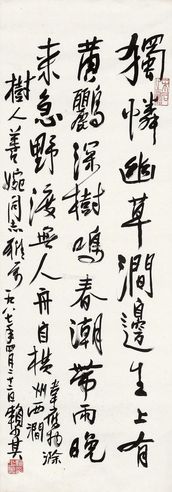 獨憐幽草澗邊生上有
黃鸝深樹鳴春潮帶雨晚
來急野渡無人舟自橫
韋應物滁
州西澗
樹人善婉同志雅弓
一九八七年四月二十二日賴少其